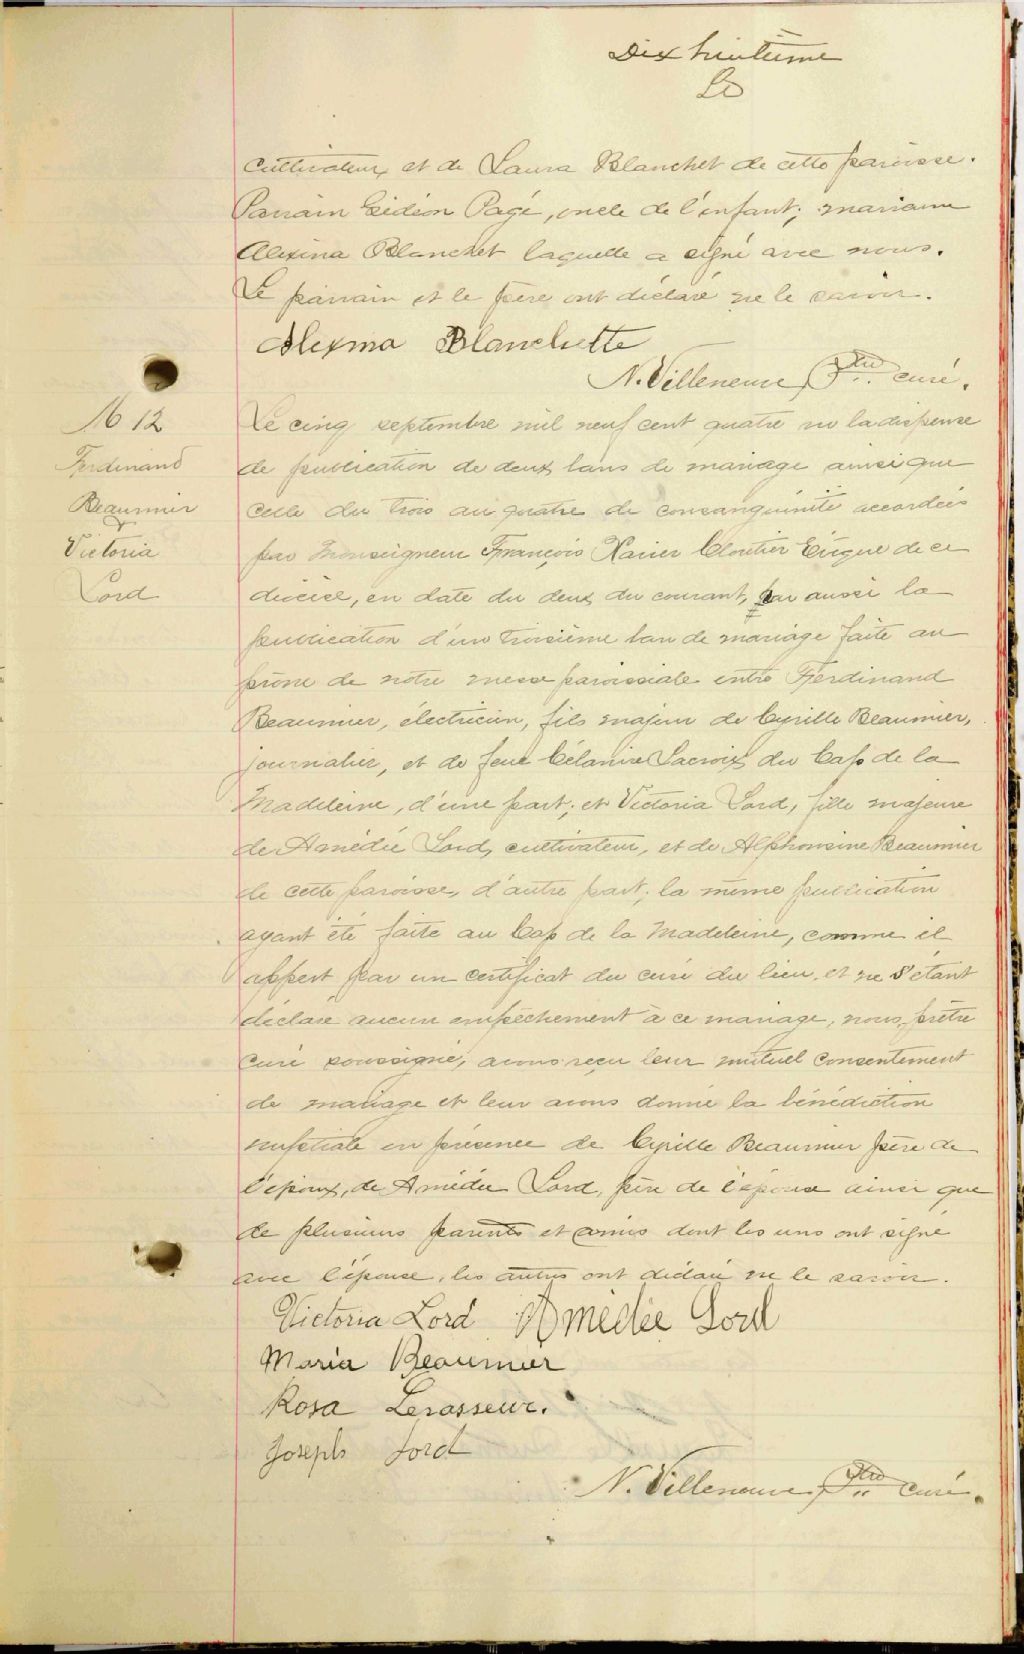 Dix huitième
cultivateur et de Laura Blanchet de cette paroisse.
Parrain Gédéon Pagé, oncle de l'enfant; marraine
Alexina Blanchet laquelle a signé avec nous.
Le parrain et le père ont déclaré ne le savoir.
Alexina Blanchette
N. Villeneuve, Ptre curé.
M 12
Ferdinand
Beaumier
&
Victoria
Lord
Le cinq septembre mil neuf cent quatre vu la dispense
de publication de deux bans de mariage ainsi que
celle du trois au quatre de consanguinité accordées
par Monseigneur François Xavier Cloutier Evêque de ce
diocèse, en date du deux du courant, par aussi la
publication d'un troisième ban de mariage faite au
prône de notre messe paroissiale entre Ferdinand
Beaumier, électricien, fils majeur de Cyrille Beaumier,
journalier, et de feue Célanire Lacroix du Cap de la
Madeleine, d'une part; et Victoria Lord, fille majeure
de Amédée Lord, cultivateur, et de Alphonsine Beaumier
de cette paroisse, d'autre part; la même publication
ayant été faite au Cap de la Madeleine, comme il
appert par un certificat du curé du lieu, et ne s'étant
déclaré aucun empêchement à ce mariage, nous, prêtre
curé soussigné, avons reçu leur mutuel consentement
de mariage et leur avons donné la bénédiction
nuptiale en présence de Cyrille Beaumier père de
l'époux, de Amédée Lord, père de l'épouse ainsi que
de plusieurs parents et amis dont les uns ont signé
avec l'épouse, les autres ont déclaré ne le savoir.
Victoria Lord Amédée Lord
Maria Beaumier
Rosa Levasseur.
Joseph Lord
N. Villeneuve, Ptre curé.